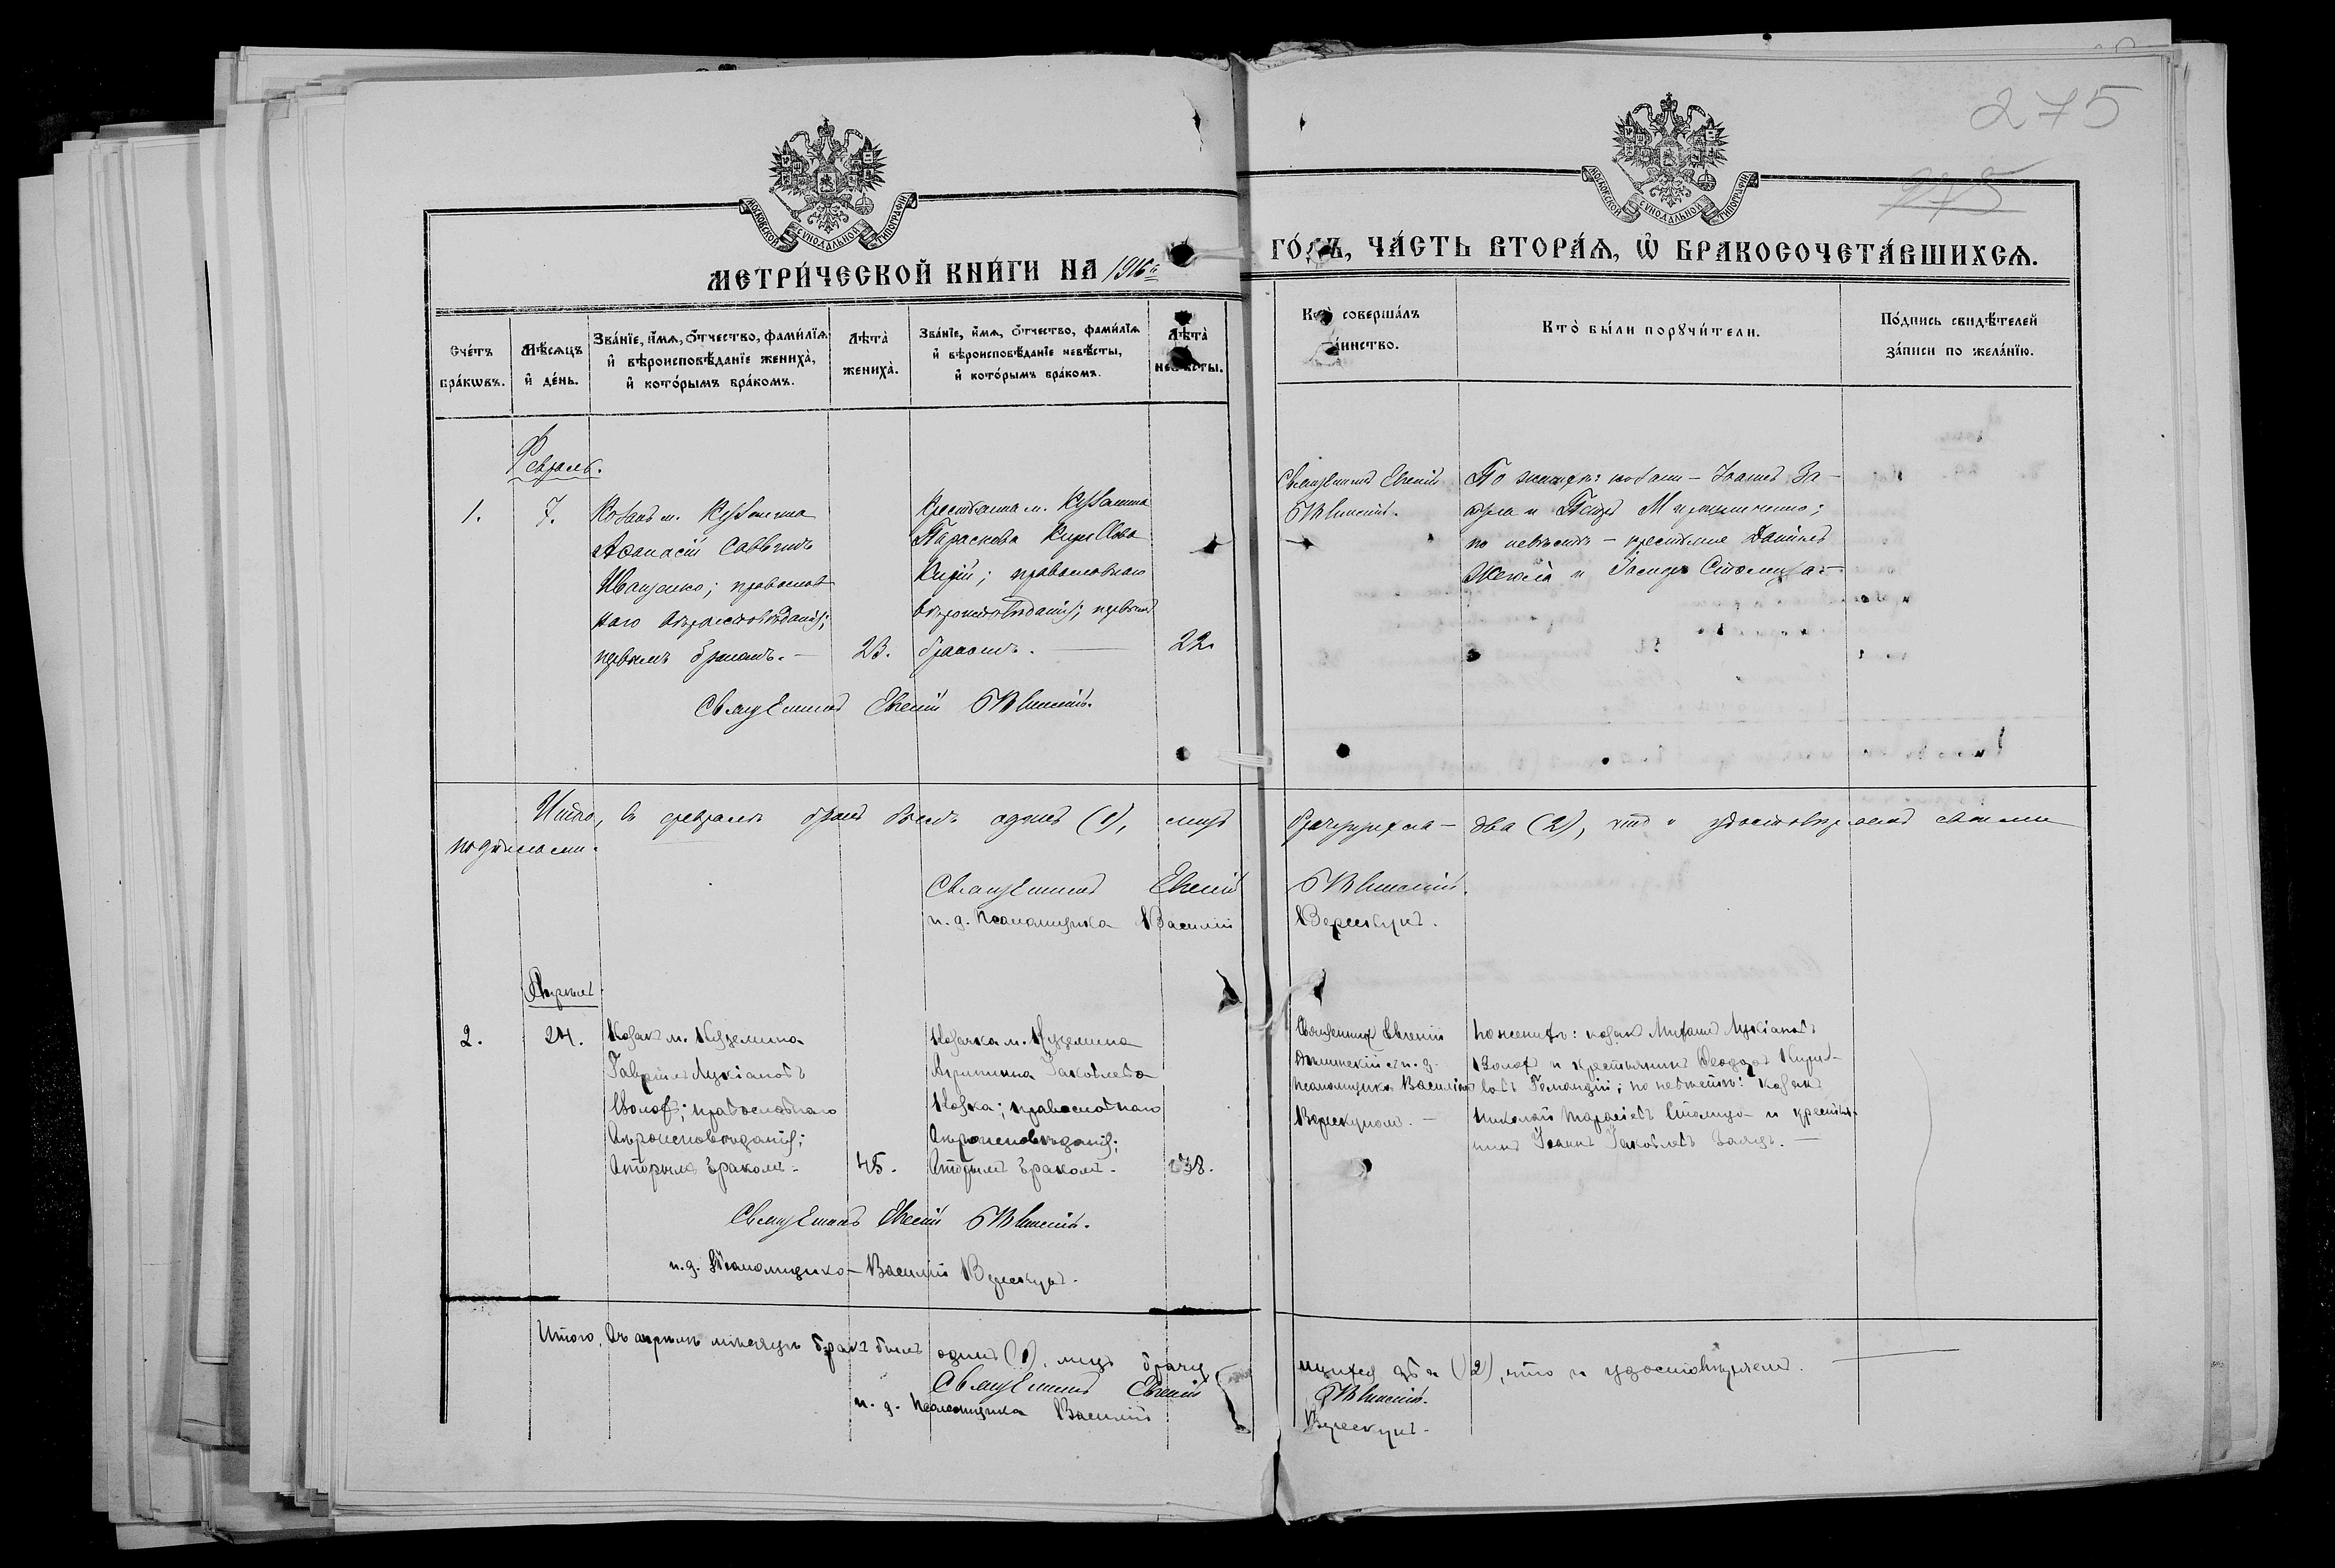 275
275
МОСКОВСКОЙ СѴНОДАЛЬНОЙ ТИПОГРАФІИ
МОСКОВСКОЙ СѴНОДАЛЬНОЙ ТИПОГРАФІИ
МЕТРИ́ЧЕСКОЙ КНИ́ГИ НА 1916й ГО́ДЪ, ЧА́СТЬ ВТОРА́Ѧ, Ѡ БРАКОСОЧЕТА́ВШИХСѦ.
Сче́тъ бра́кѡвъ.
Мѣ́сѧцъ и де́нь.
Зва́нїе, и́мѧ, ѻ́тчество, фами́лїѧ
и вѣроисповѣ́данїе жениха̀,
и кото́рымъ бра́комъ.
Лѣта̀ жениха̀.
Зва́нїе, и́мѧ, ѻ́тчество, фами́лїѧ
и вѣроисповѣ́данїе невѣ́сты,
и кото́рымъ бра́комъ.
Лѣта̀ невѣ́сты.
Кто̀ соверша́лъ та́инство.
Кто̀ бы́ли порꙋчи́тели.
По́дпись свидѣ́телей
за́писи по жела́нїю.
Февраль.
1.
7.
Козакъ м. Куземина
Аѳанасій Саввинъ
Иващенко; православ
наго вѣроисповѣданія;
первымъ бракомъ. —
23.
Крестьянка м. Куземина
Параскева Кириллова
Кирій; православнаго
вѣроисповѣданія; первымъ
бракомъ. —
22.
Священникъ Евгеній
По женихѣ: козаки – Іоаннъ
и Петръ
по невѣстѣ – крестьяне Даніилъ
и Столица. —
Священникъ Евгеній
Итого, въ февралѣ бракъ былъ одинъ (1), лицъ брачущихся – два (2), что и удостовѣряемъ своими
подписями.
Священникъ Евгеній
и. д. псаломщика Василій Верескунъ.
Апрѣль
2.
24.
Козакъ м. Куземина
Гавріилъ Лукіановъ
Волоф; православнаго
вѣроисповѣданія;
вторымъ бракомъ.
45.
Козачка м. Куземина
Агрипина Іаковлева
православнаго
вѣроисповѣданія;
вторымъ бракомъ.
38.
Священникъ Евгеній
и. д.
псаломщика Василіемъ
Верескуномъ. —
По женихѣ: козакъ Лукіановъ
и крестьянинъ Ѳеодоръ Кирил-
ловъ по невѣстѣ: козакъ
Николай Тарасіевъ Столица и крестья-
нинъ Іоаннъ Іаковлевъ Заяцъ. —
Священникъ Евгеній
и. д. Псаломщика – Василій Верескунъ.
Итого, въ апрѣлѣ мѣсяцѣ бракъ былъ одинъ (1), лицъ брачу
щихся два (2), что и удостовѣряемъ.
Священникъ Евгеній
и. д. псаломщика Василій Верескунъ.